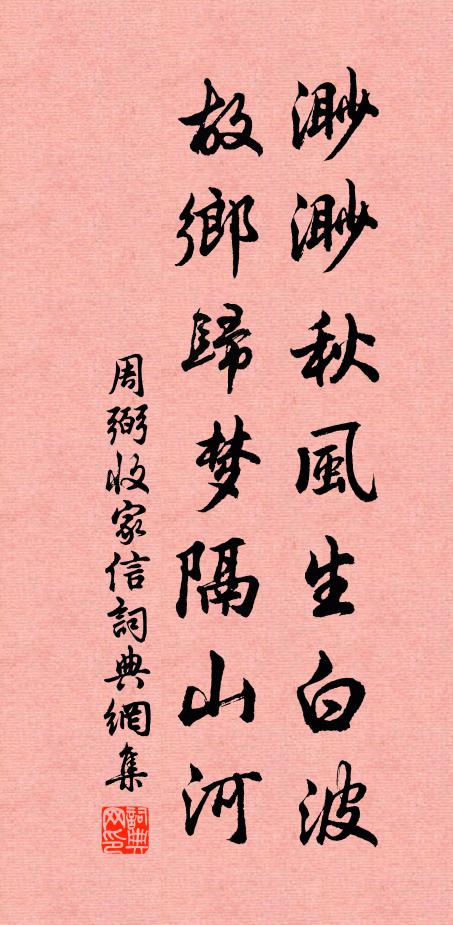 渺渺秋風生白波
故鄉歸梦隔山河
周弼收家信詞典網集
詞典网印